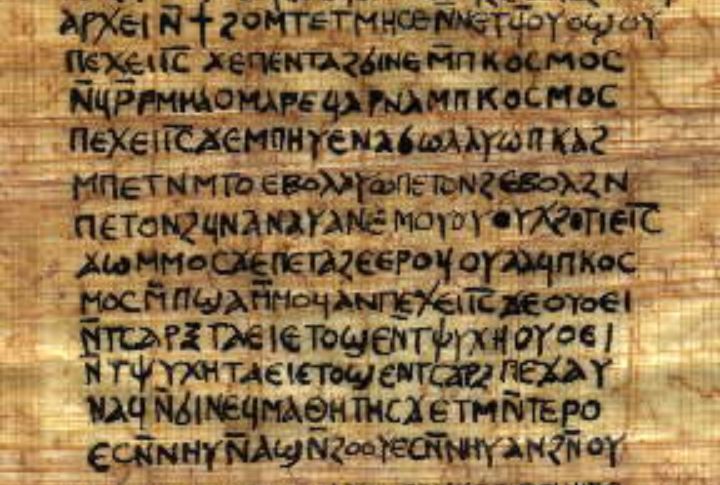 ⲁⲣⲭⲉⲓⲛ̄ϯϩⲟⲙⲧⲉⲧⲙⲏⲥⲉⲛ̄ⲛⲉⲧϥ̄ⲟⲩⲟϣⲟⲩ
ⲡⲉϫⲉⲓ̅ⲥ̅ϫⲉⲡⲉⲛⲧⲁϩϭⲓⲛⲉⲙ̄ⲡⲕⲟⲥⲙⲟⲥ
ⲛ̄ϥⲣ̄ⲣⲙⲙⲁⲟⲙⲁⲣⲉϥⲁⲣⲛⲁⲙⲡⲕⲟⲥⲙⲟⲥ
ⲡⲉϫⲉⲓ̅ⲥ̅ϫⲉⲙⲡⲏⲩⲉⲛⲁϭⲱⲗⲁⲩⲱⲡⲕⲁϩ
ⲙⲡⲉⲧⲛⲙⲧⲟⲉⲃⲟⲗⲁⲩⲱⲡⲉⲧⲟⲛϩⲉⲃⲟⲗϩⲛ
ⲡⲉⲧⲟⲛϩϥⲛⲁⲛⲁⲩⲁⲛⲉⲙⲟⲩ
ϫⲱⲙⲙⲟⲥϫⲉⲡⲉⲧⲁϩⲉⲉⲣⲟϥⲟⲩⲁⲁϥⲡⲕⲟⲥ
ⲙⲟⲥⲙ̄ⲡϣⲁⲙ̄ⲙⲟϥⲁⲛⲡⲉϫⲉⲓ̅ⲥ̅ϫⲉⲟⲩⲟⲉⲓ
ⲛ̄ⲧⲥⲁⲣⲝⲧⲁⲉⲓⲉⲧⲟϣⲉⲛⲧⲯⲩⲭⲏⲟⲩⲟⲉⲓ
ⲛ̄ⲧⲯⲩⲭⲏⲧⲁⲉⲓⲉⲧⲟϣⲉⲛⲧⲥⲁⲣⲝⲡⲉϫⲁⲩ
ⲛⲁϥⲛ̄ϭⲓⲛⲉϥⲙⲁⲑⲏⲧⲏⲥϫⲉⲧⲙⲛ̄ⲧⲉⲣⲟ
ⲉⲥⲛ̄ⲛⲏⲩⲛ̄ⲁϣⲛ̄ϩⲟⲟⲩⲉⲥⲛ̄ⲛⲏⲩⲁⲛϩⲛ̄ⲟⲩ